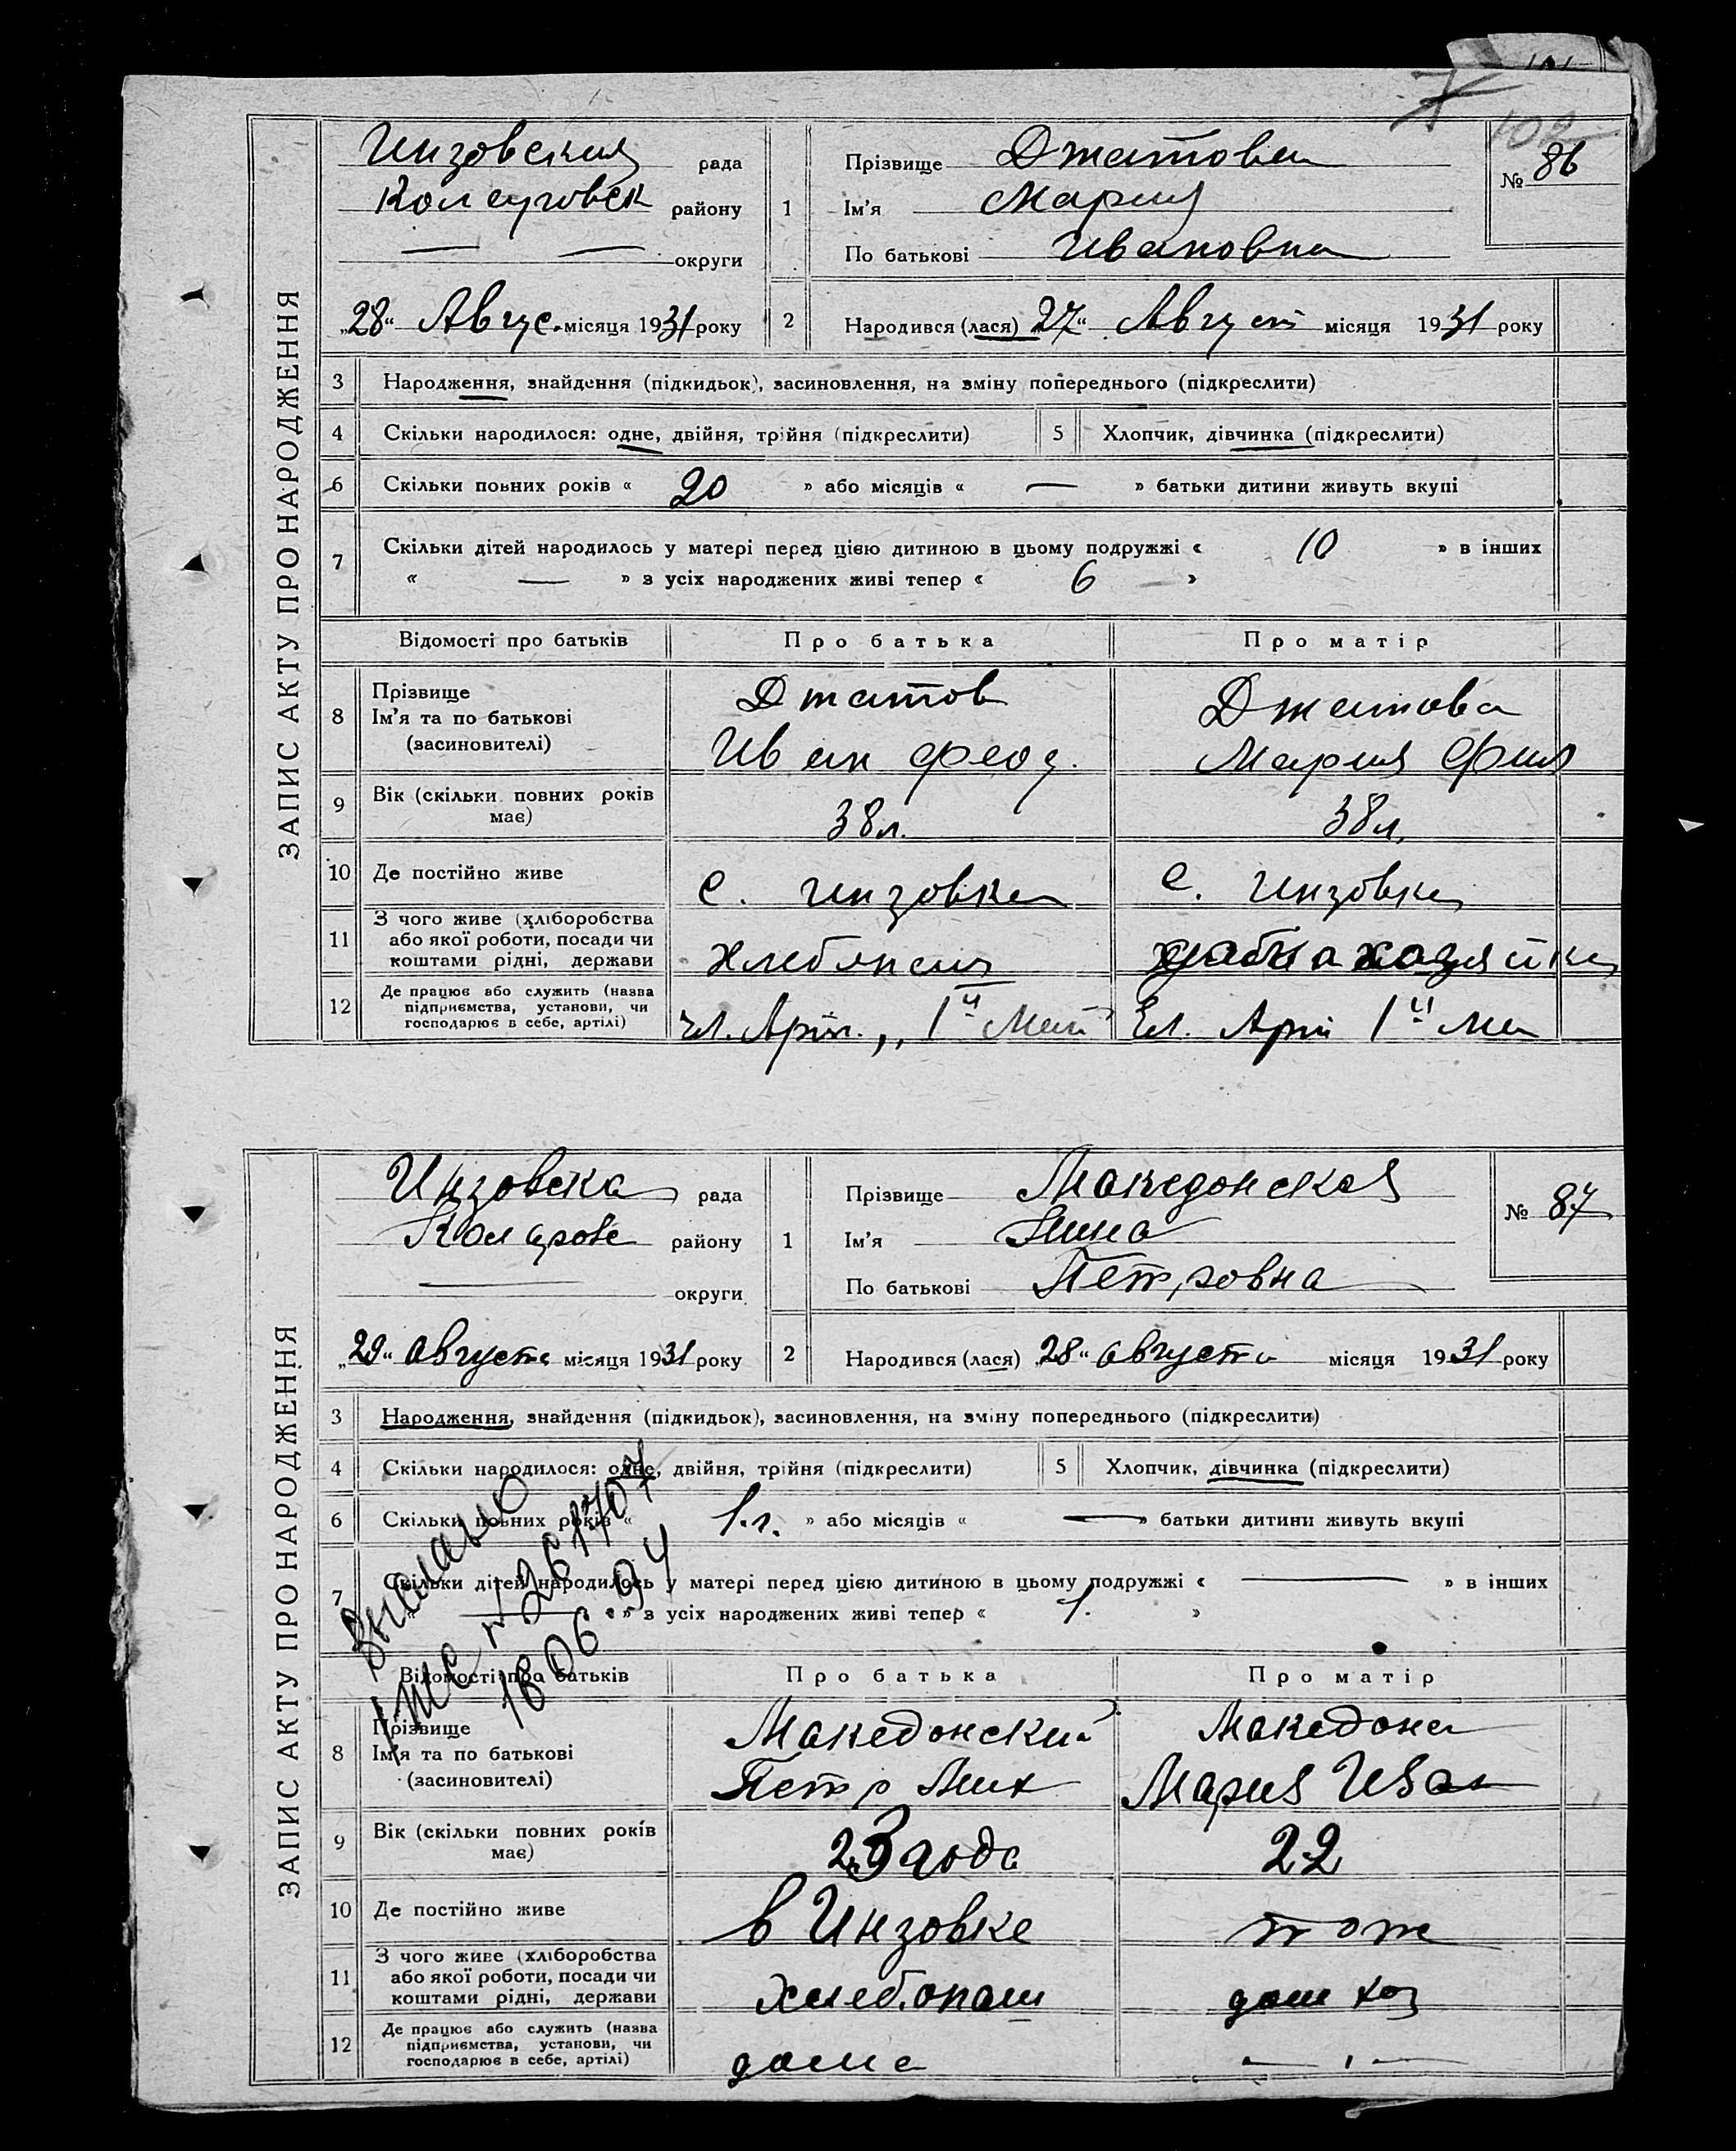 102
ЗАПИС АКТУ ПРО НАРОДЖЕННЯ
Инзовская рада
району
округи
„28“ Авгус. місяця 1931 року
1
Прізвище Джатова
Ім'я Мария
По батькові Ивановна
№ 86
2
Народився (лася) „27“ Август місяця 1931 року
3 Народження, знайдення (підкидьок), засиновлення, на зміну попереднього (підкреслити)
4 Скільки народилося: одне, двійня, трійня (підкреслити)
5 Хлопчик, дівчинка (підкреслити)
6 Скільки повних років « 20 » або місяців « — » батьки дитини живуть вкупі
7 Скільки дітей народилось у матері перед цією дитиною в цьому подружжі « 10 » в інших
« — » з усіх народжених живі тепер « 6 »
Відомості про батьків Про батька Про матір
8 Прізвище
Ім'я та по батькові
(засиновителі)
Джатов
Иван Феод.
Джатова
Мария Фил
9 Вік (скільки повних років
має)
38 л.
38 л.
10 Де постійно живе
с. Инзовка
с. Инзовка
11 З чого живе (хліборобства
або якої роботи, посади чи
коштами рідні, держави
хозяйка
12 Де працює або служить (назва
підприємства, установи, чи
господарює в себе, артілі)
чл. Арт. „1й Май
Чл. Арт 1й Ма
ЗАПИС АКТУ ПРО НАРОДЖЕННЯ
Инзовска рада
району
округи
„29“ августа місяця 1931 року
1
Прізвище Македонская
Ім'я
По батькові Петровна
№ 87
2
Народився (лася) „28“ августа місяця 1931 року
3 Народження, знайдення (підкидьок), засиновлення, на зміну попереднього (підкреслити)
4 Скільки народилося: одне, двійня, трійня (підкреслити)
5 Хлопчик, дівчинка (підкреслити)
6 Скільки повних років « 1.г. » або місяців « — » батьки дитини живуть вкупі
7 Скільки дітей народилось у матері перед цією дитиною в цьому подружжі « — » в інших
« — » з усіх народжених живі тепер « 1. »
№ 261707
Відомості про батьків Про батька Про матір
8 Прізвище
Ім'я та по батькові
(засиновителі)
Македонский
Петр Мих
Македона
Мария Иван
9 Вік (скільки повних років
має)
23 года
22
10 Де постійно живе
в Инзовке
тоже
11 З чого живе (хліборобства
або якої роботи, посади чи
коштами рідні, держави
хлебопаш
дом хоз
12 Де працює або служить (назва
підприємства, установи, чи
господарює в себе, артілі)
дома
— ı —